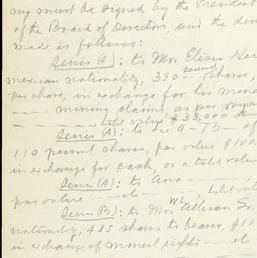 ny must be signed by the President
of the Board of Directors, and the dis
made is follows:
Series A : to Mr. Eliseo
mexican nationality, 330 shares,
per share, in exchange for his min
mining claims as per
total value $33,000
Series (A): to
110 shares, par value $100
in exchange for cash, or a total valu
Series (A): to Ana
par value total val
Series (B): to Mr. W. Ellison Sr.
nationality, 485 shares to bearer, $10
in exchange of mineral rights